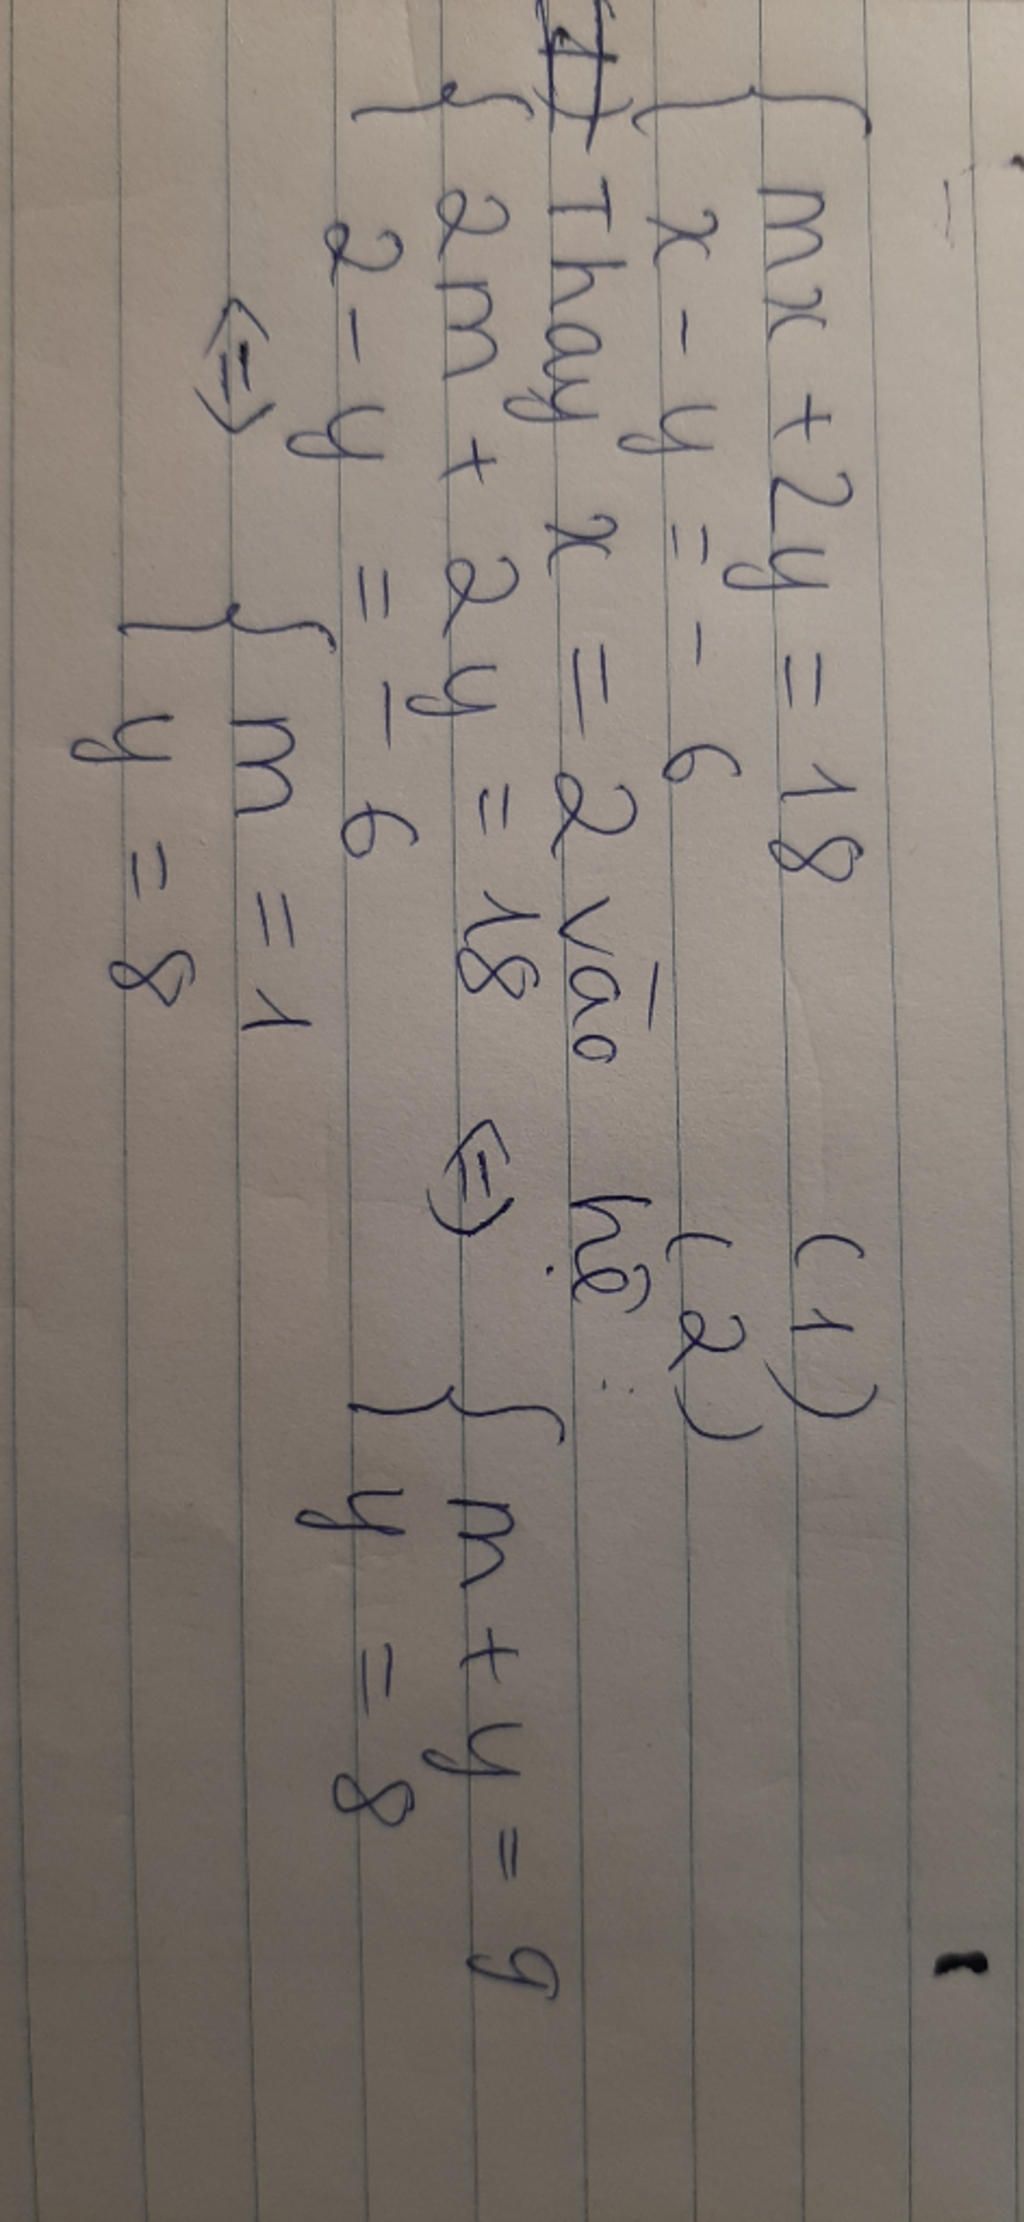 mx + 2y = 18 (1)
x - y = - 6 (2)
Thay x = 2 vào hệ :
2m + 2y = 18 <=> m + y = 9
2 - y = - 6 y = 8
<=> m = 1
y = 8